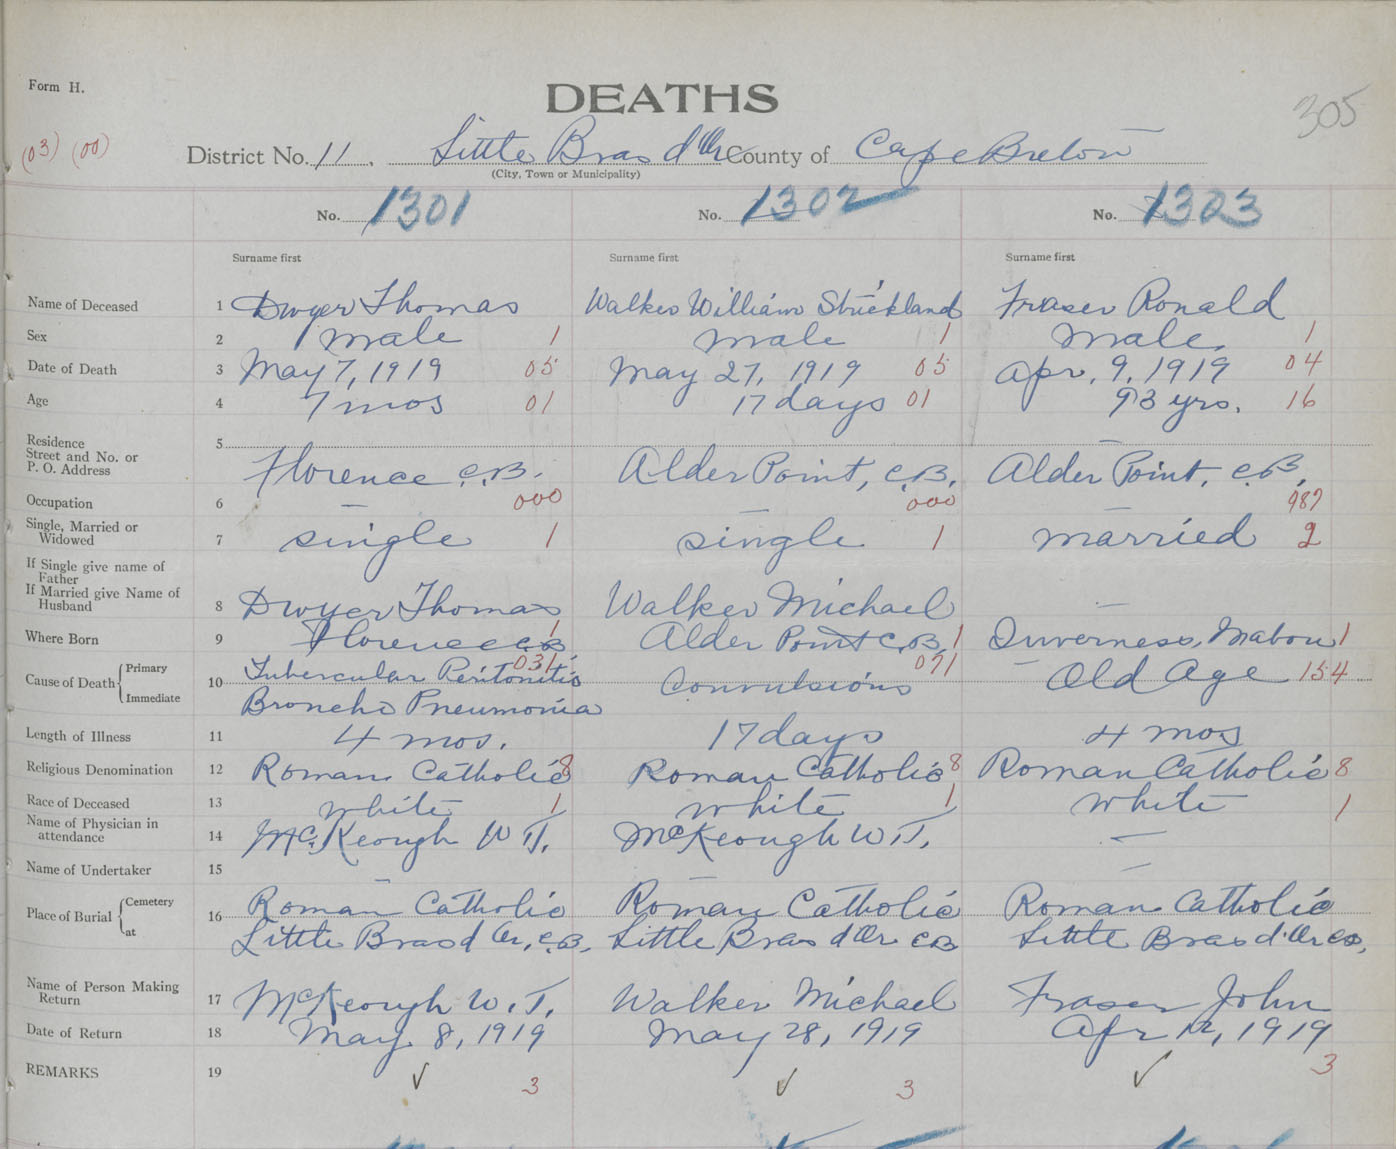 Form H.
DEATHS
305
(03) (00)
District No. 11. Little Bras d'Or County of Cape Breton
(City, Town or Municipality)
No. 1301 No. 1302 No. 1303
Surname first Surname first Surname first
Name of Deceased 1 Dwyer Thomas Walker William Strickland Fraser Ronald
Sex 2 male 1 male 1 male 1
Date of Death 3 May 7, 1919 05 May 27, 1919 05 Apr. 9, 1919 04
Age 4 7 mos 01 17 days 01 93 yrs. 16
Residence
Street and No. or
P. O. Address 5 Florence C.B. Alder Point, C.B. Alder Point, C.B.
Occupation 6 — 000 — 000 — 987
Single, Married or
Widowed 7 single 1 single 1 married 2
If Single give name of
Father
If Married give Name of
Husband 8 Dwyer Thomas Walker Michael —
Where Born 9 Florence C.B. 1 Alder Point C.B. 1 Inverness, Mabou 1
Cause of Death Primary 10 Tubercular Peritonitis 031 Convulsions 071 Old Age 154
Immediate Broncho Pneumonia
Length of Illness 11 4 mos. 17 days 4 mos
Religious Denomination 12 Roman Catholic 8 Roman Catholic 8 Roman Catholic 8
Race of Deceased 13 white 1 white 1 white 1
Name of Physician in
attendance 14 McKeough W T. McKeough W.T. —
Name of Undertaker 15 — — —
Place of Burial Cemetery 16 Roman Catholic Roman Catholic Roman Catholic
at Little Bras d'Or, C.B. Little Bras d'Or CB Little Bras d'Or CB,
Name of Person Making
Return 17 McKeough W.T. Walker Michael Fraser John
Date of Return 18 May 8, 1919 May 28, 1919 Apr 12, 1919
REMARKS 19 ✓ 3 ✓ 3 ✓ 3